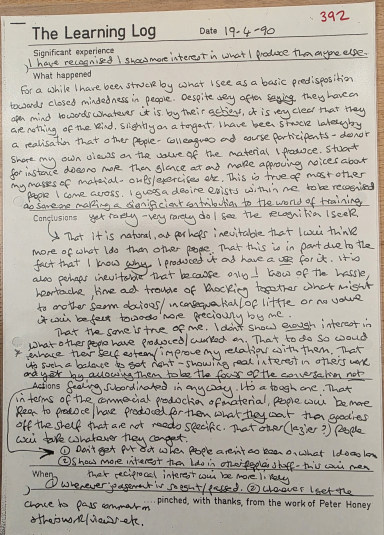 392
The Learning Log Date 19-4-90
Significant experience
I have recognised I show more interest in what I produce than anyone else.
What happened
For a while I have been struck by what I see as a basic predisposition
towards closed mindedness in people. Despite very often saying they have an
open mind towards whatever it is by their actions, it is very clear that they
are nothing of the kind. Slightly on a tangent. I have been struck lately by
a realisation that other people - colleagues and course participants - do not
share my own views on the value of the material I produce. Stuart
for instance does no more than glance at and make approving noices about
my masses of material - ohp's/exercises etc. This is true of most other
people I come across. I guess a desire exists within me to be recognised
as someone making a significant contribution to the world of training,
Conclusions yet rarely - very rarely do I see the recognition I seek
That it is natural, and perhaps inevitable that I will think
more of what I do than other people. That this is in part due to the
fact that I know why I produced it and have a use for it. It is
also perhaps inevitable that because only I know of the hassle,
heartache, time and trouble of knocking together what might
to another seem obvious/inconsequential/of little or no value
it will be felt towards more preciously by me.
That the same is true of me. I don't show enough interest in
what other people have produced/worked on. That to do so would
enhance their self esteem/improve my relation with them. That
it's such a balance to get right - showing real interest in other's work
and yet by allowing them to be the focus of the conversation not
Actions feeling subordinated in any way. It's a tough one. That
in terms of the commercial production of material, people will be more
keen to produce/have produced for them what they want than goodies
off the shelf that are not needs specific. That other (lazier?) people
will take whatever they can get.
① Don't get put out when people aren't as keen on what I do as I am
② Show more interest than I do in other people's stuff - this will mean
When that reciprocal interest will be more likely
① Whenever judgement is sought/passed. ② Whenever I get the
chance to pass comment on ....pinched, with thanks, from the work of Peter Honey
others work/views etc.